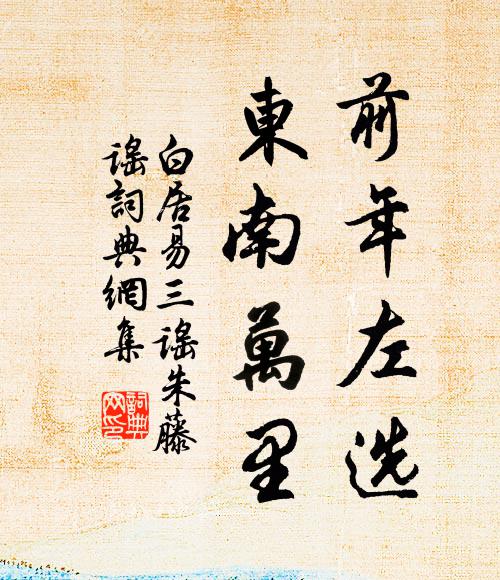 前年左选
東南萬里
白居易三謠朱藤
謠詞典網集
詞典网印